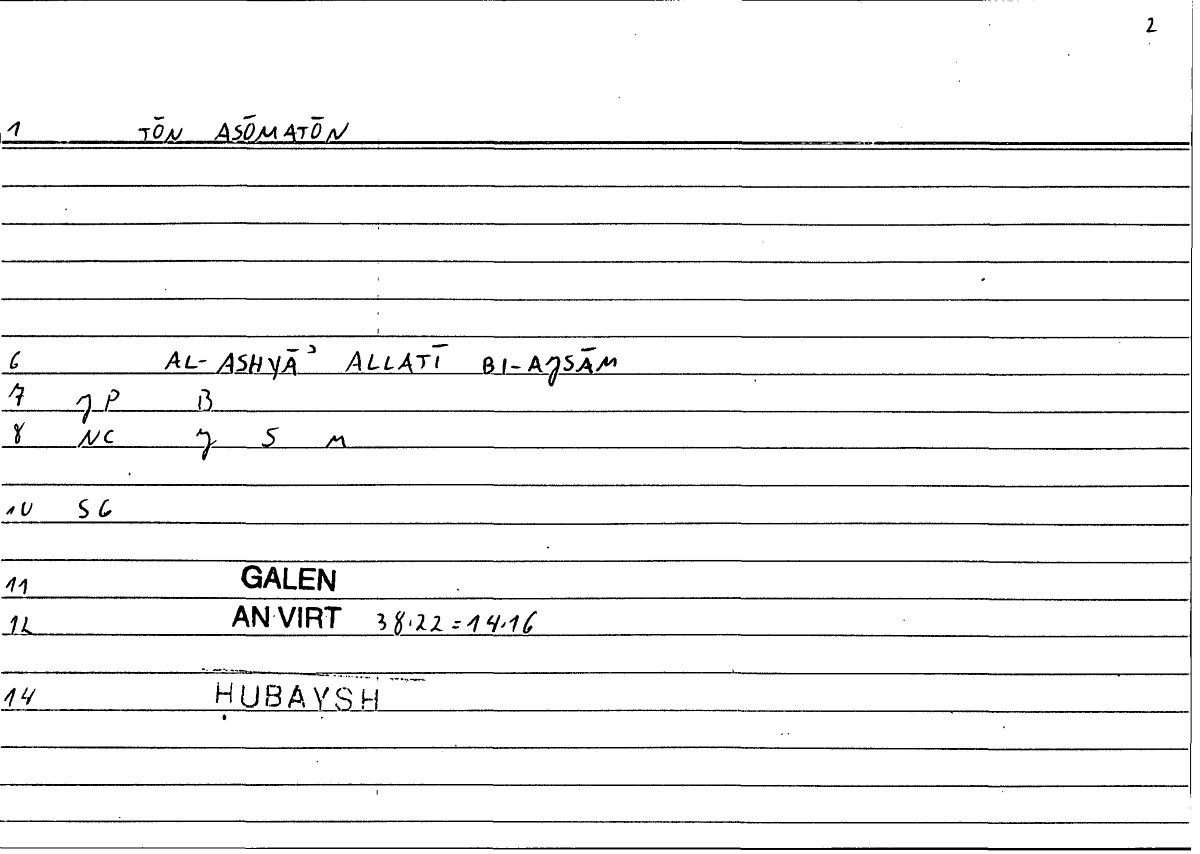 2
1 TŌN ASŌMATŌN
6 AL-ASHYĀʾ ALLATĪ BI-AJSĀM
7 JP B
8 NC J S M
10 SG
11 GALEN
12 AN VIRT 38.22=14.16
14 ḤUBAYSH